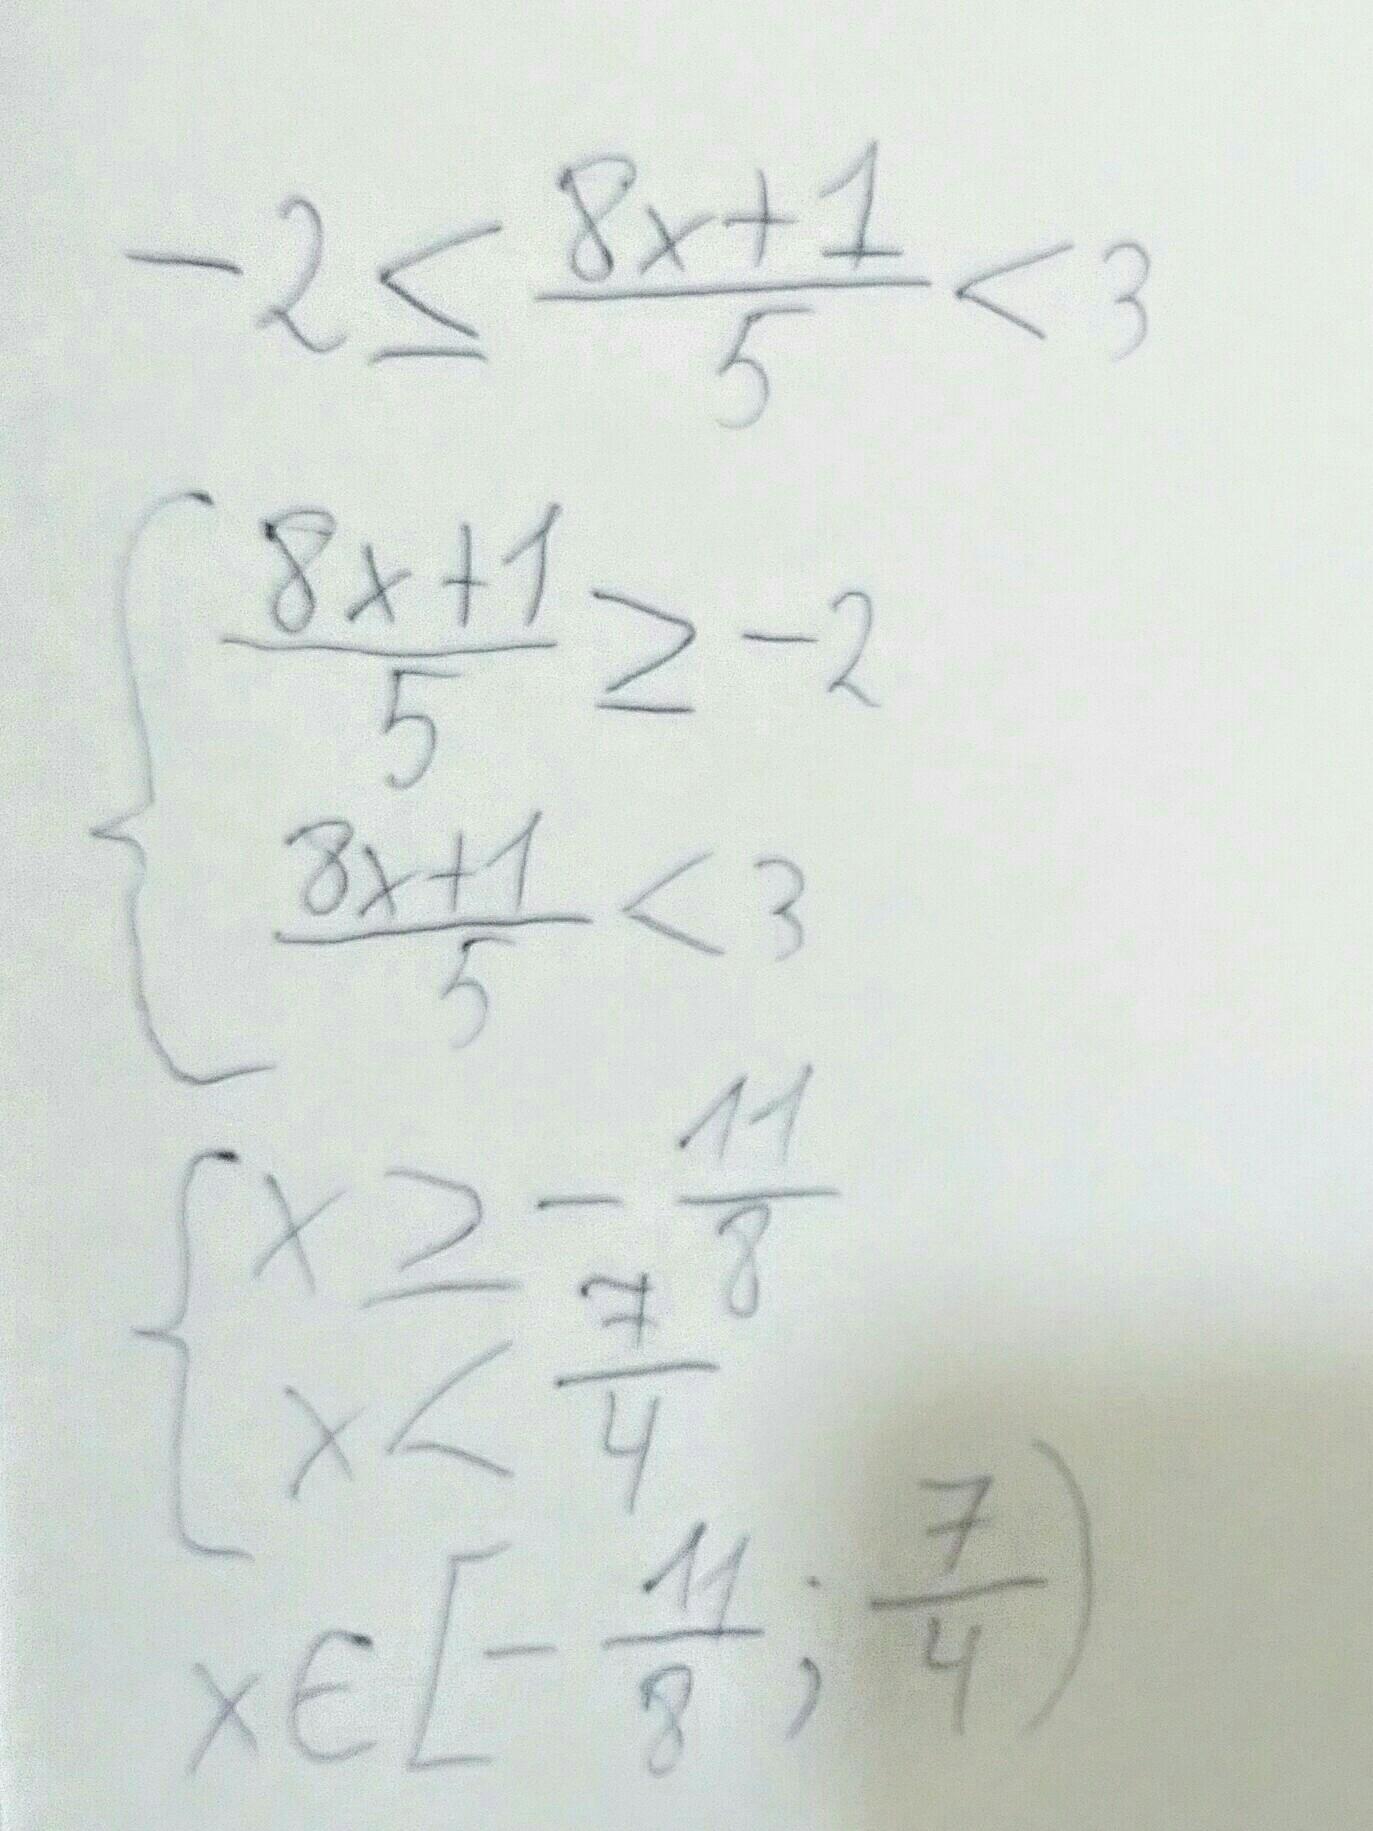 -2 ≤ \frac{8x+1}{5} < 3
\begin{cases} \frac{8x+1}{5} ≥ -2
\frac{8x+1}{5} < 3 \end{cases}
\begin{cases} x ≥ -\frac{11}{8}
x < \frac{7}{4} \end{cases}
x ∈ [-\frac{11}{8}; \frac{7}{4})